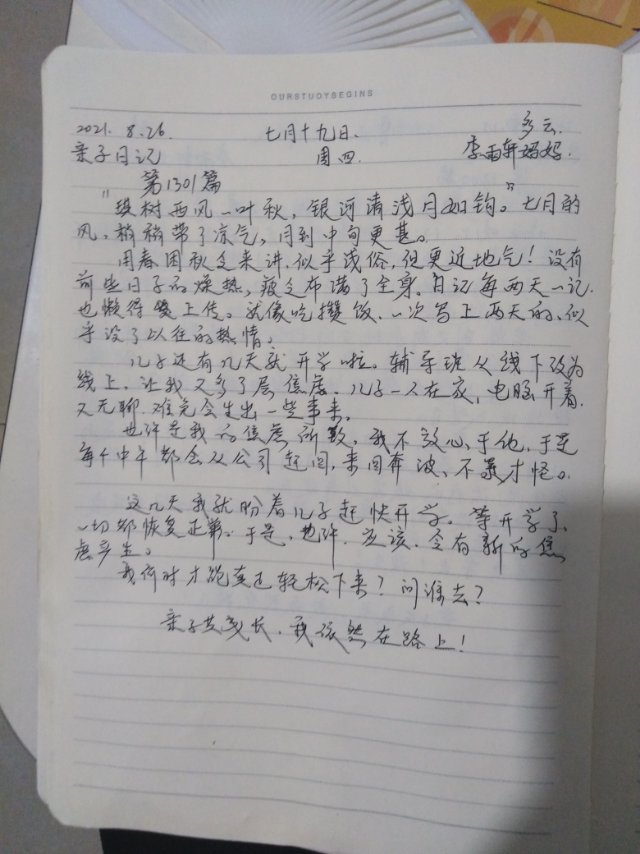 OURSTUDYBEGINS
2021. 8.26. 七月十九日. 多云.
亲子日记 周四. 李雨轩妈妈.
第1301篇
"璟树西风一叶秋，银河清浅月如钩。"七月的
风，稍稍带了凉气，月到中旬更甚。
用春困秋乏来讲，似乎浅俗，但更近地气！没有
前些日子的燥热，疲乏布满了全身。日记每两天一记
也懒得上传。就像吃攒饭，一次写上两天的，似
乎没了以往的热情。
儿子还有几天就开学啦。辅导班从线下改为
线上，让我又多了层焦虑。儿子一人在家，电脑开着，
又无聊，难免会生出一些事来。
也许是我的焦虑所致，我不放心于他，于是
每个中午都会从公司赶回，来回奔波，不累才怪。
这几天我就盼着儿子赶快开学。等开学了，
一切都恢复正常。于是，也许，应该，会有新的焦
虑产生。
我何时才能真正轻松下来？问谁去？
亲子共成长，我依然在路上！